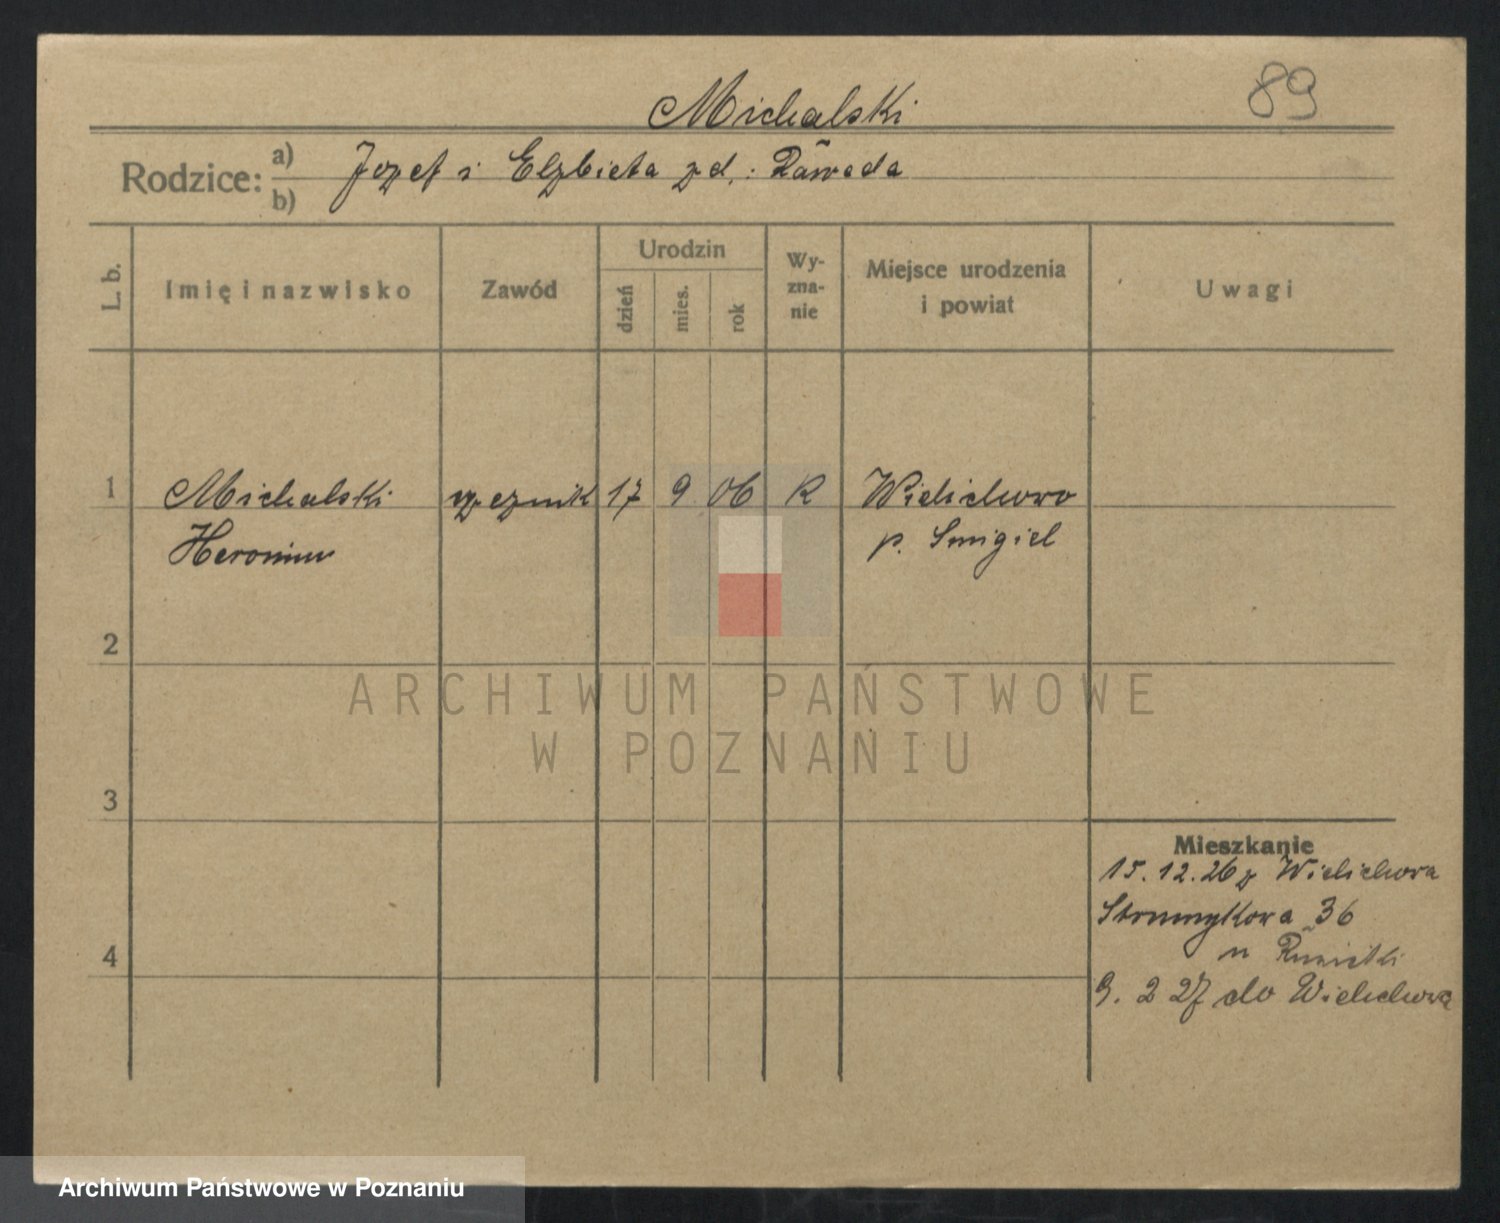 89
Michalski
Rodzice: a) Jozef i Elzbieta zd.: Rawada
b)
L. b. Imię i nazwisko Zawód Urodzin dzień mies. rok Wy-zna-nie Miejsce urodzenia i powiat Uwagi
1 Michalski rzeznik 17 9 06 R Wielichowo
Heronim p. Smigiel
2
3
4
Mieszkanie
15.12.26 z Wielichowa
Strumykowa 36
u
9. 2 27 do Wielichowa
ARCHIWUM PAŃSTWOWE
W POZNANIU
Archiwum Państwowe w Poznaniu